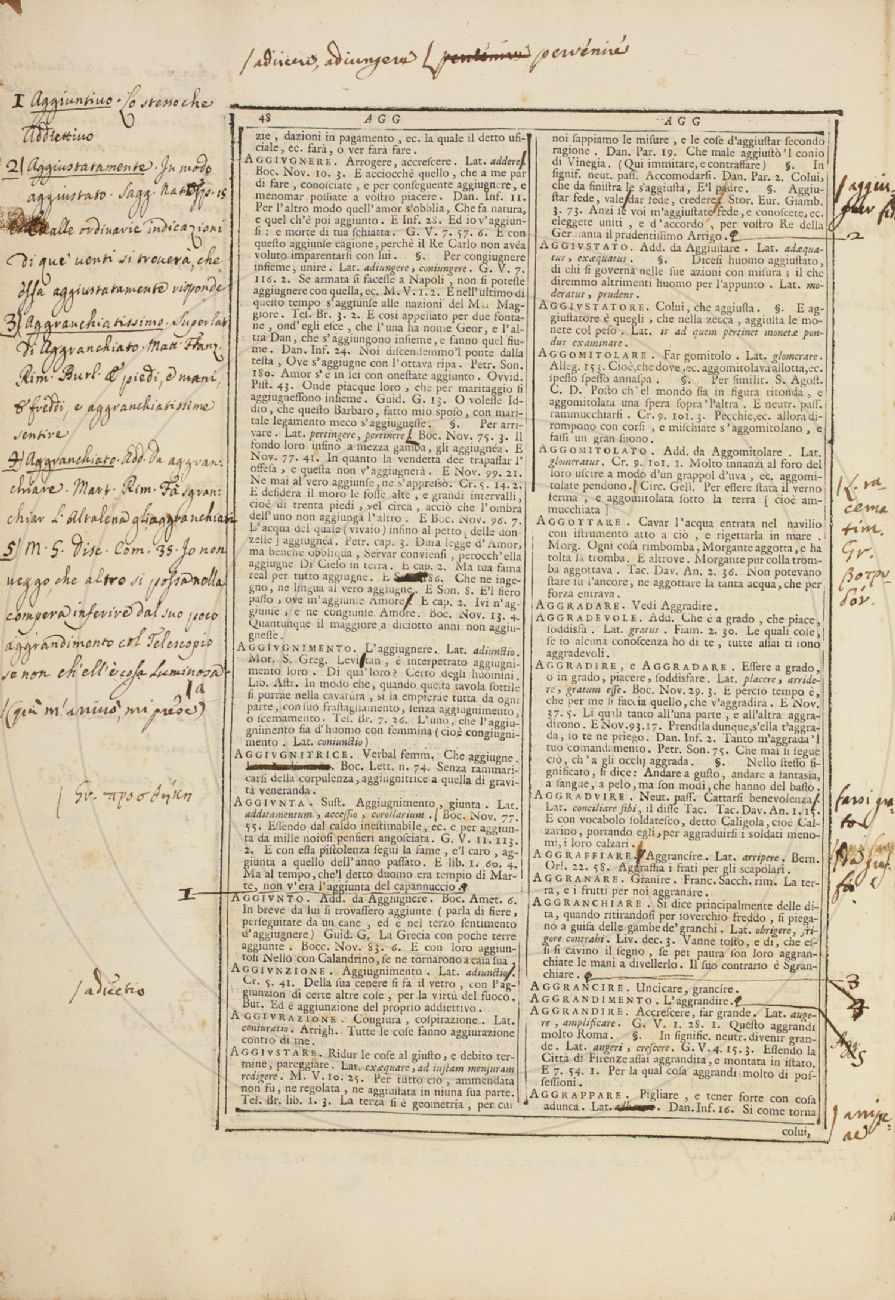 / adiicere, adiungere / pervenire
1 Aggiuntivo. Lo stesso che
Addiettivo
2/ Aggiustatamente. In modo
aggiustato. Sagg. Nat.
alle ordinarie indicazioni
di que' venti si troverà, che
essa aggiustatamente risponde
3/ Aggranchiatissimo. Superlat.
di Aggranchiato. Matt. Franz.
Rim. Burl. E piedi, e mani,
e freddi, e aggranchiatissime
sentire
4/ Aggranchiato. Add. da aggran-
chiare. Matt. Rim.
chiar L'Altalena gli aggranchiati
5/ M. S. Disc. Com. 35. Io non
veggo, che altro si possa nella
compera inferire dal suo poco
aggrandimento col Telescopio
se non ch'ell'è cosa luminosa
/ Gr. προσθήκη
1
/ adiectio
48 AGG AGG
zie, dazioni in pagamento, ec. la quale il detto ufi-
ciale, ec. farà, o ver farà fare.
AGGIVGNERE. Arrogere, accrescere. Lat. addere.
Boc. Nov. 10. 3. E acciocchè quello, che a me par
di fare, conosciate, e per conseguente aggiugnere, e
menomar possiate a vostro piacere. Dan. Inf. 11.
Per l'altro modo quell'amor s'obblia, Che fa natura,
e quel ch'è poi aggiunto. E Inf. 28. Ed io v'aggiun-
si: e morte di tua schiatta. G. V. 7. 57. 6. E con
questo aggiunse cagione, perchè il Re Carlo non avéa
voluto imparentarsi con lui. §. Per congiugnere
insieme, unire. Lat. adiungere, coniungere. G. V. 7.
116. 2. Se armata si facesse a Napoli, non si potesse
aggiugnere con quella, ec. M. V. 1. 2. E nell'ultimo di
questo tempo s'aggiunse alle nazioni del Mar Mag-
giore. Tes. Br. 3. 2. E così appellato per due fonta-
ne, ond'egli esce, che l'una ha nome Geor, e l'al-
tra Dan, che s'aggiungono insieme, e fanno quel fiu-
me. Dan. Inf. 24. Noi discendemmo'l ponte dalla
testa, Ove s'aggiugne con l'ottava ripa. Petr. Son.
180. Amor s'è in lei con onestate aggiunto. Ovvid.
Pist. 43. Onde piacque loro, che per maritaggio si
aggiugnessono insieme. Guid. G. 13. O volesse Id-
dio, che questo Barbaro, fatto mio sposo, con mari-
tale legamento meco s'aggiugnesse. §. Per arri-
vare. Lat. pertingere, pertinere. Boc. Nov. 75. 3. Il
fondo loro insino a mezza gamba, gli aggiugnéa. E
Nov. 77. 41. In quanto la vendetta dee trapassar l'
offesa, e questa non v'aggiugnerà. E Nov. 99. 21.
Ne mai al vero aggiunse, ne s'appressò. Cr. 5. 14. 2.
E desidera il moro le fosse alte, e grandi intervalli,
cioè di trenta piedi, vel circa, acciò che l'ombra
dell'uno non aggiunga l'altro. E Boc. Nov. 96. 7.
L'acqua del quale (vivaio) insino al petto [delle don-
zelle] aggiugnéa. Petr. cap. 3. Dura legge d'Amor,
ma benchè obbliqua, Servar conviensi, perocch'ella
aggiugne Di Cielo in terra. E cap. 2. Ma tua fama
real per tutto aggiugne. E 86. Che ne inge-
gno, ne lingua al vero aggiugne. E Son. 8. E'l fiero
passo, ove m'aggiunse Amore. E cap. 2. Ivi n'ag-
giunse, e ne congiunse Amore. Boc. Nov. 13. 4.
Quantunque il maggiore a diciotto anni non aggiu-
gnesse.
AGGIVGNIMENTO. L'aggiugnere. Lat. adiunctio.
Mor. S. Greg. Levitan, è interpetrato aggiugni-
mento loro. Di qua' loro? Certo degli huomini.
Lib. Astr. In modo che, quando questa tavola sottile
si porrae nella cavatura, si la empierae tutta da ogni
parte, con suo frastagliamento, senza aggiugnimento,
o scemamento. Tes. Br. 7. 26. L'uno, che l'aggiu-
gnimento sia d'huomo con femmina (cioè congiugni-
mento. Lat. coniunctio)
AGGIVGNITRICE. Verbal femm. Che aggiugne.
Boc. Lett. n. 74. Senza rammari-
carsi della corpulenza, aggiugnitrice a quella di gravi-
tà veneranda.
AGGIVNTA. Sust. Aggiugnimento, giunta. Lat.
additamentum, accessio, corollarium. Boc. Nov. 77.
55. Essendo dal caldo inestimabile, ec. e per aggiun-
ta da mille noiosi pensieri angosciata. G. V. 11. 113.
2. E con essa pistolenza seguì la fame, e'l caro, ag-
giunta a quello dell'anno passato. E lib. 1. 60. 4.
Ma al tempo, che'l detto duomo era tempio di Mar-
te, non v'era l'aggiunta del capannuccio.
AGGIVNTO. Add. da Aggiugnere. Boc. Amet. 6.
In breve da lui si trovassero aggiunte (parla di fiere,
perseguitate da un cane, ed è nel terzo sentimento
d'aggiugnere) Guid. G. La Grecia con poche terre
aggiunte. Bocc. Nov. 83. 6. E con loro aggiun-
tosi Nello con Calandrino, se ne tornarono a casa sua.
AGGIVNZIONE. Aggiugnimento. Lat. adiunctio.
Cr. 5. 41. Della sua cenere si fa il vetro, con l'ag-
giunzion di certe altre cose, per la virtù del fuoco.
But. Ed è aggiunzione del proprio addiettivo.
AGGIVRAZIONE. Congiura, cospirazione. Lat.
coniuratio. Arrigh. Tutte le cose fanno aggiurazione
contro di me.
AGGIVSTARE. Ridur le cose al giusto, e debito ter-
mine, pareggiare. Lat. exæquare, ad iustam mensuram
redigere. M. V. 10. 25. Per tutto ciò, ammendata
non fu, ne regolata, ne aggiustata in niuna sua parte.
Tes. Br. lib. 1. 3. La terza si è geometria, per cui
noi sappiamo le misure, e le cose d'aggiustar secondo
ragione. Dan. Par. 19. Che male aggiustò 'l conio
di Vinegia. (Qui immitare, e contraffare) §. In
signif. neut. pass. Accomodarsi. Dan. Par. 2. Colui,
che da sinistra le s'aggiusta, E'l padre. §. Aggiu-
star fede, vale dar fede, credere. Stor. Eur. Giamb.
3. 73. Anzi se voi m'aggiustate fede, e conoscete, ec.
eleggete uniti, e d'accordo, per vostro Re della
Germania il prudentissimo Arrigo.
AGGIVSTATO. Add. da Aggiustare. Lat. adæqua-
tus, exæquatus. §. Dicesi huomo aggiustato,
di chi si governa nelle sue azioni con misura; il che
diremmo altrimenti huomo per l'appunto. Lat. mo-
deratus, prudens.
AGGIVSTATORE. Colui, che aggiusta. §. E ag-
giustatore è quegli, che nella zecca, aggiusta le mo-
nete col peso. Lat. is ad quem pertinet monetæ pon-
dus examinare.
AGGOMITOLARE. Far gomitolo. Lat. glomerare.
Alleg. 153. Cioè, che dove, ec. aggomitolava allotta, ec.
spesso spesso annaspa. §. Per similit. S. Agost.
C. D. Posto ch'el mondo sia in figura ritonda, e
aggomitolata una spera sopra l'altra. E neutr. pass.
rammucchiarsi. Cr. 9. 101. 3. Pecchie, ec. allora di-
rompono con corsi, e mischiate s'aggomitolano, e
fassi un gran suono.
AGGOMITOLATO. Add. da Aggomitolare. Lat.
glomeratus. Cr. 9. 101. 1. Molto innanzi al foro del
loro uscire a modo d'un grappol d'uva, ec. aggomi-
tolate pendono. Circ. Gell. Per essere stata il verno
ferma, e aggomitolata sotto la terra [cioè am-
mucchiata]
AGGOTTARE. Cavar l'acqua entrata nel navilio
con istrumento atto a ciò, e rigettarla in mare.
Morg. Ogni cosa rimbomba, Morgante aggotta, e ha
tolta la tromba. E altrove. Morgante pur colla trom-
ba aggottava. Tac. Dav. An. 2. 36. Non potevano
stare su l'ancore, ne aggottare la tanta acqua, che per
forza entrava.
AGGRADARE. Vedi Aggradire.
AGGRADEVOLE. Add. Che è a grado, che piace,
soddisfà. Lat. gratus. Fiam. 2. 30. Le quali cose,
se io alcuna conoscenza ho di te, tutte assai ti iono
aggradevoli.
AGGRADIRE, e AGGRADARE. Essere a grado,
o in grado, piacere, soddisfare. Lat. placere, arride-
re, gratum esse. Boc. Nov. 29. 3. E perciò tempo è,
che per me si faccia quello, che v'aggradirà. E Nov.
37. 5. Li quali tanto all'una parte, e all'altra aggra-
dirono. E Nov. 93. 17. Prendila dunque, s'ella t'aggra-
da, io te ne priego. Dan. Inf. 2. Tanto m'aggrada 'l
tuo comandamento. Petr. Son. 75. Che mai si segue
ciò, ch'a gli occhi aggrada. §. Nello stesso si-
gnificato, si dice: Andare a gusto, andare a fantasia,
a sangue, a pelo, ma son modi, che hanno del basso.
AGGRADVIRE. Neut. pass. Cattarsi benevolenza.
Lat. conciliare sibi, il disse Tac. Tac. Dav. An. 1. 15.
E con vocabolo soldatesco, detto Caligola, cioè Cal-
zarino, portando egli, per aggraduirsi i soldati meno-
mi, i loro calzari.
AGGRAFFIARE. Aggrancire. Lat. arripere. Bern.
Orl. 22. 58. Aggraffia i frati per gli scapolari.
AGGRANARE. Granire. Franc. Sacch. rim. La ter-
ra, e i frutti per noi aggranare.
AGGRANCHIARE. Si dice principalmente delle di-
ta, quando ritirandosi per soverchio freddo, si piega-
no a guisa delle gambe de' granchi. Lat. obrigere, fri-
gore contrahi. Liv. dec. 3. Vanne tosto, e di, che es-
si si cavino il segno, se per paura son loro aggran-
chiate le mani a divellerlo. Il suo contrario è Sgran-
chiare.
AGGRANCIRE. Uncicare, grancire.
AGGRANDIMENTO. L'aggrandire.
AGGRANDIRE. Accrescere, far grande. Lat. auge-
re, amplificare. G. V. 1. 28. 1. Questo aggrandì
molto Roma. §. In signific. neutr. divenir gran-
de. Lat. augeri, crescere. G. V. 4. 15. 3. Essendo la
Città di Firenze assai aggrandita, e montata in istato.
E 7. 54. 1. Per la qual cosa aggrandì molto di pos-
sessioni.
AGGRAPPARE. Pigliare, e tener forte con cosa
adunca. Lat. Dan. Inf. 16. Sì come torna
colui,
2
racema
tim.
Gr.
βοτρυ
δόν.
farsi gra-
to
3
4
5